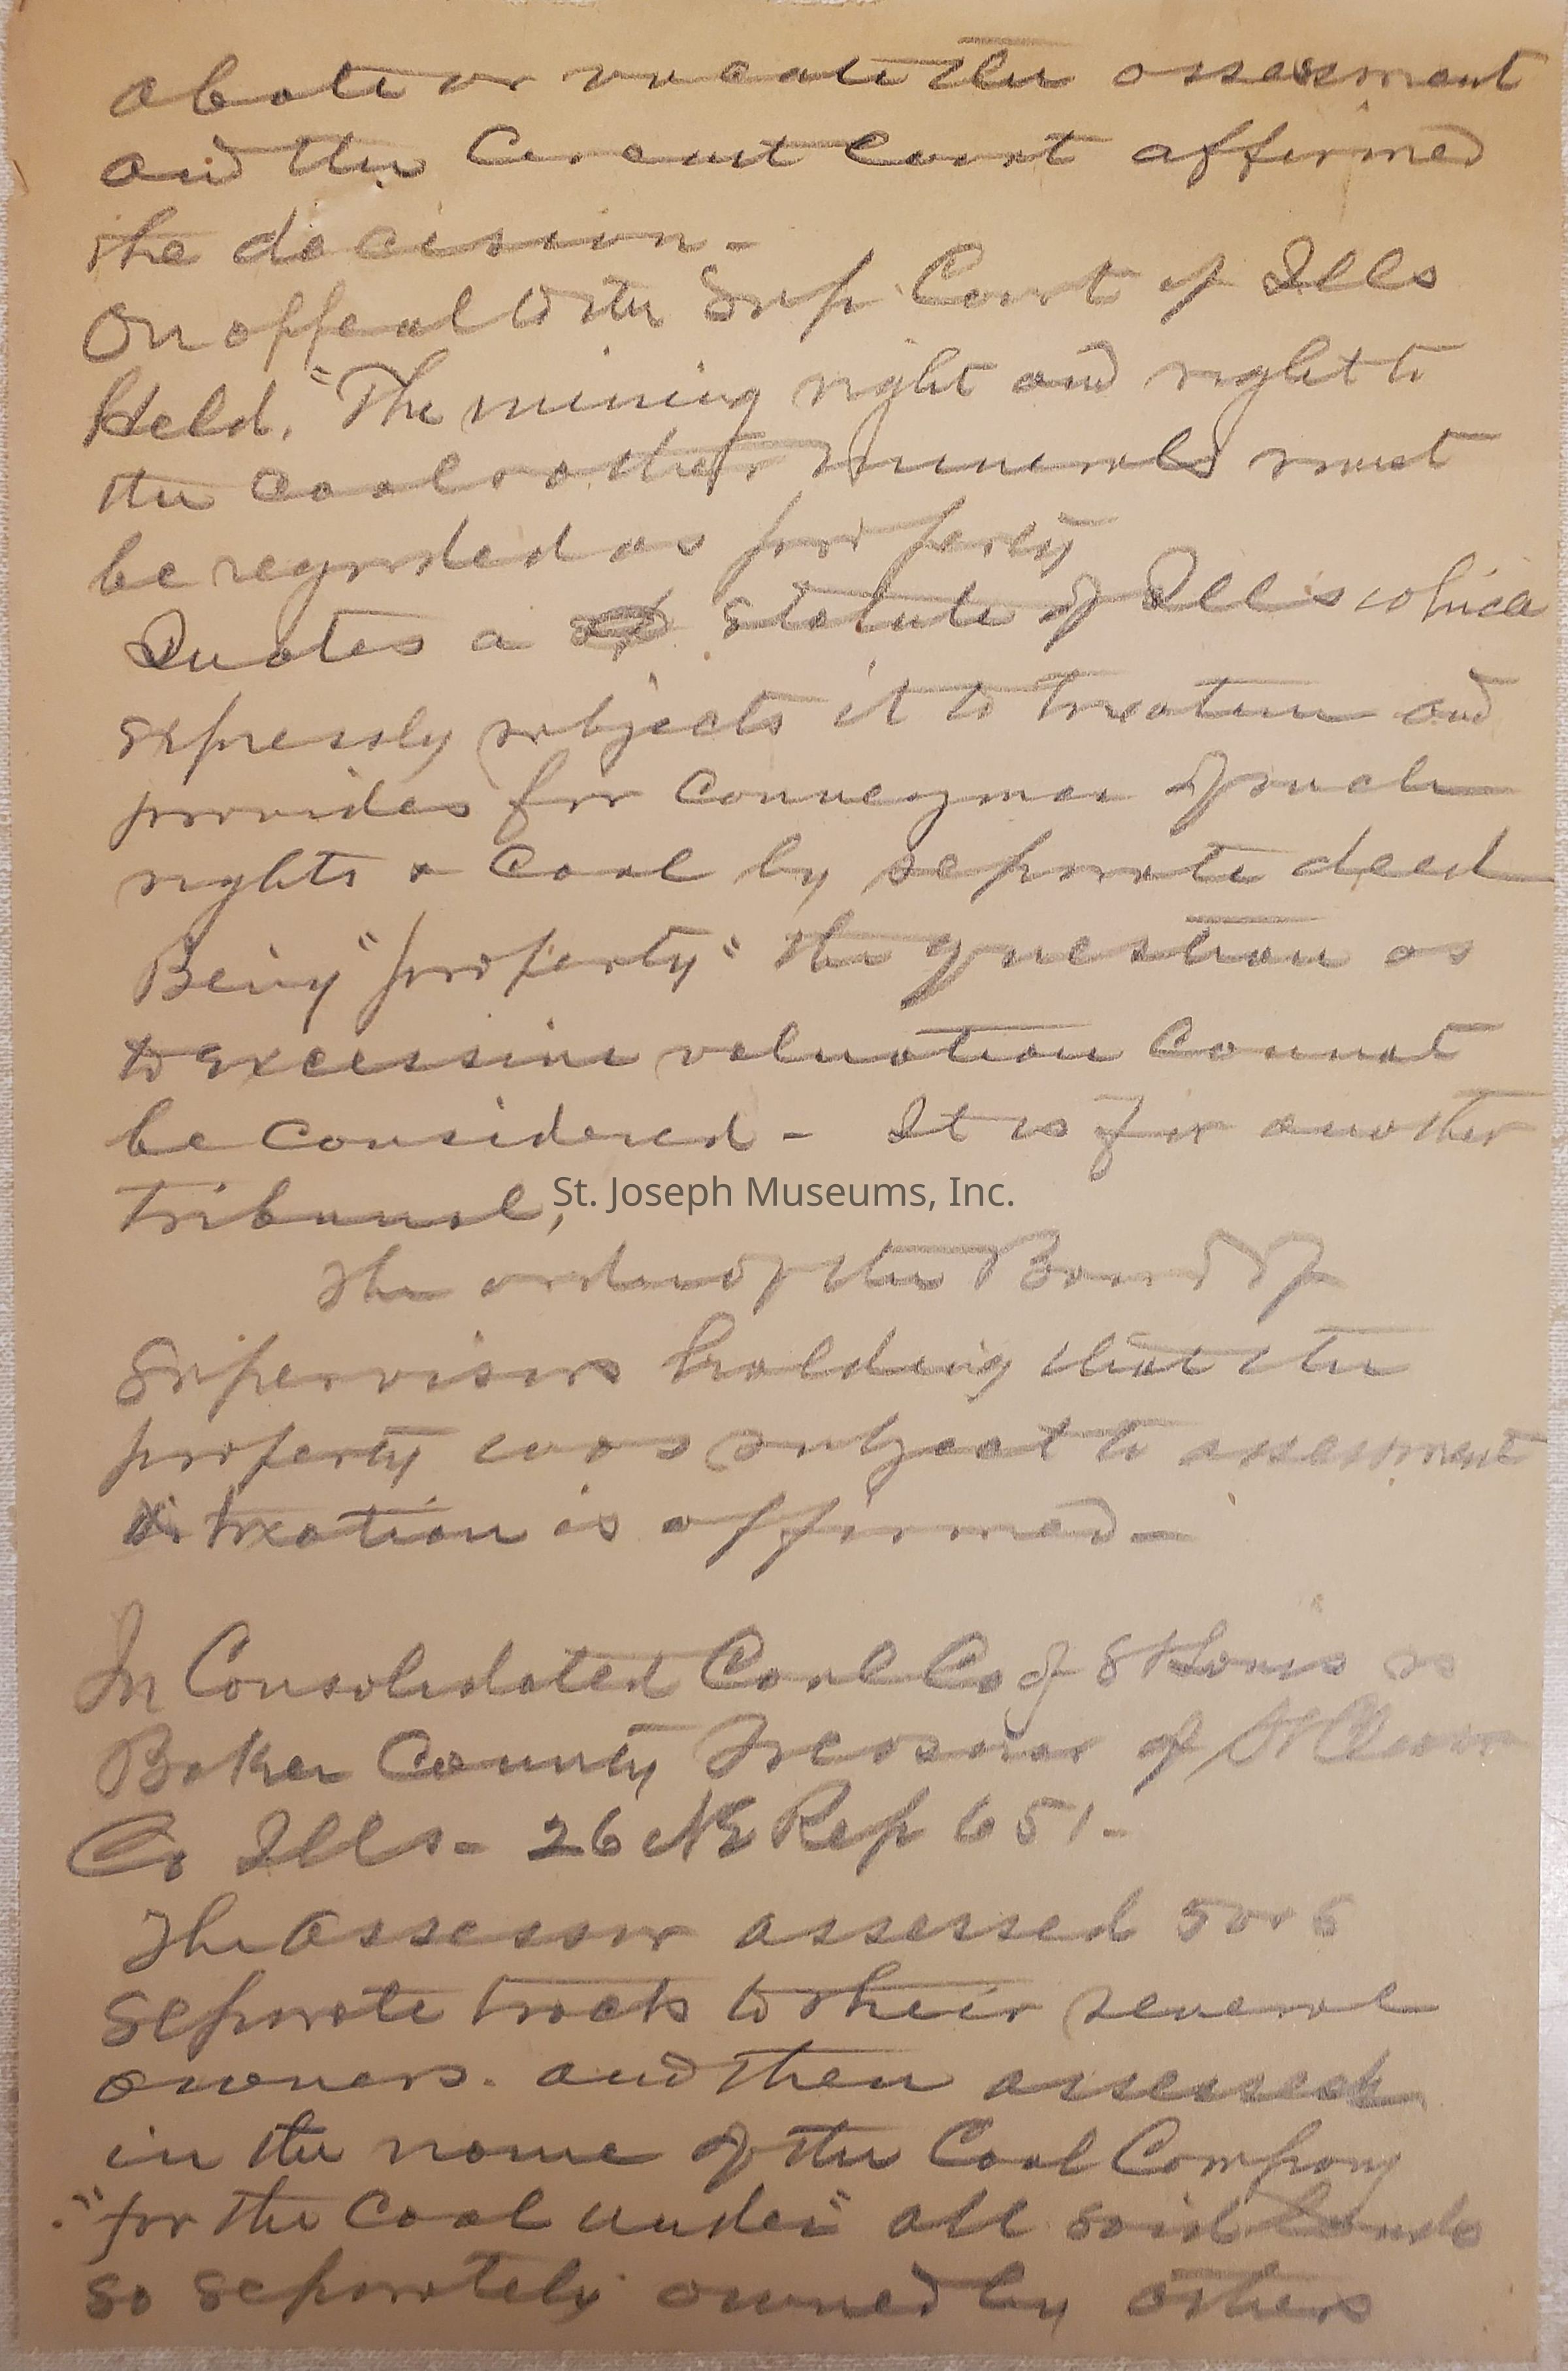 abate or vacate the assessment
and the Circuit Court affirmed
the decision -
On appeal to the Sup Court of Ills
Held. "The mining right and right to
the coal & other minerals must
be regarded as property
Quotes a statute of Ills which
expressly subjects it to taxation and
provides for conveyance of such
rights & coal by separate deed
Being "property" the question as
to excessive valuation cannot
be considered - It is for another
tribunal,
St. Joseph Museums, Inc.
The order of the Board of
Supervisors holding that the
property was subject to assessment
& taxation is affirmed -
In Consolidated Coal Co of St Louis vs
Baker County Treasurer of St Clair
Co Ills - 26 NE Rep 651 -
The Assessor assessed 5 or 6
separate tracts to their several
owners. and then assessed
in the name of the Coal Company
"for the coal under" all said lands
so separately owned by others